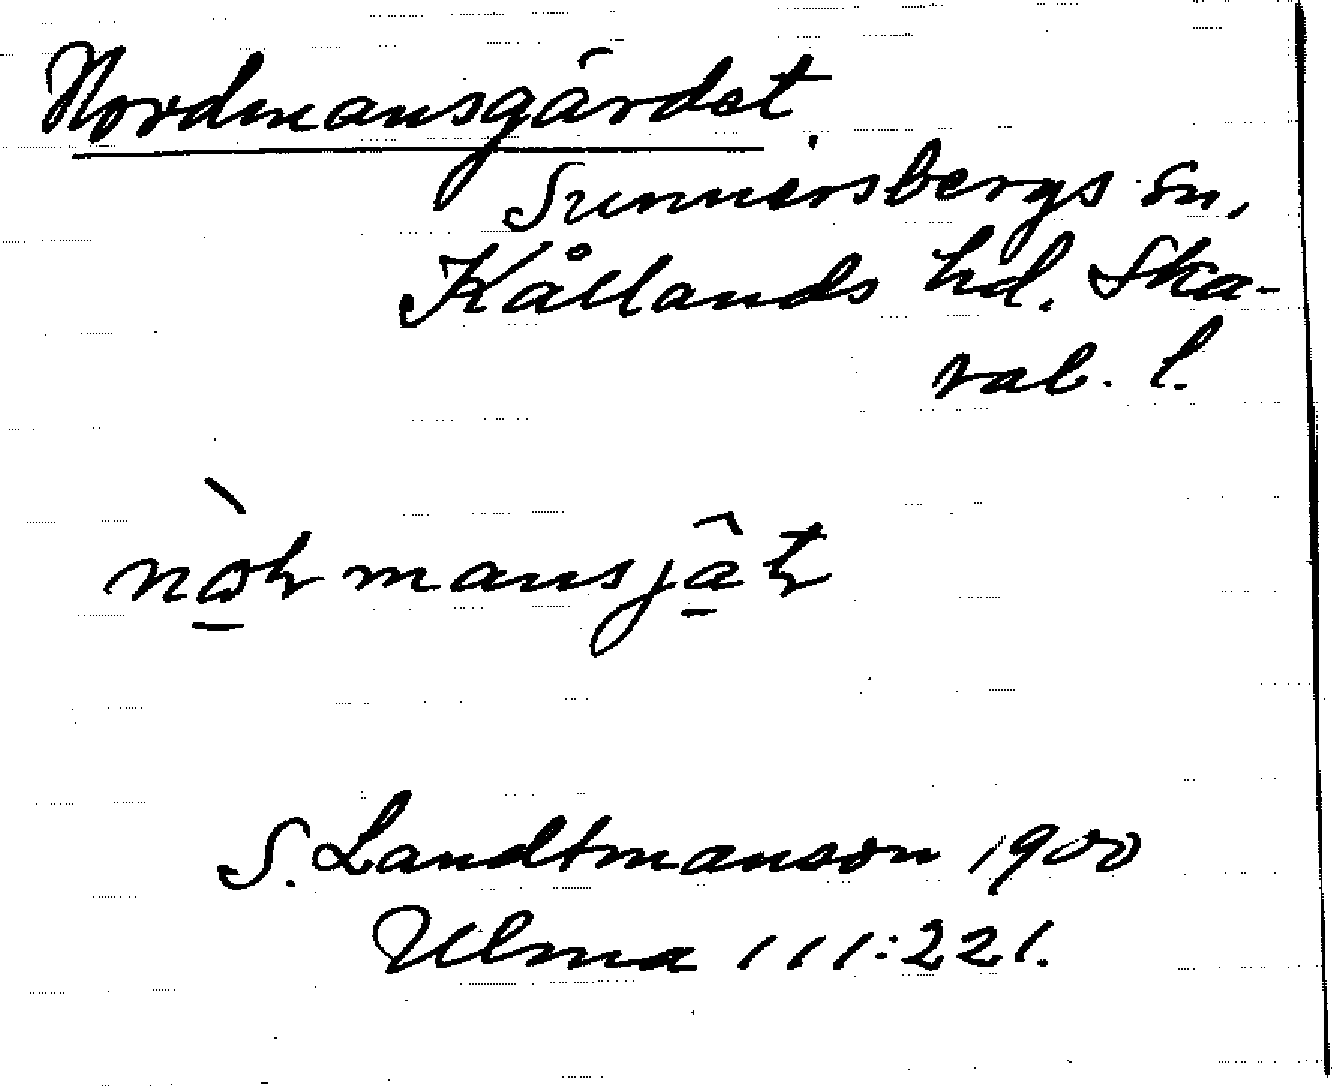 Nordmansgärdet.
Sunnersbergs sn,
Kållands hd. Ska-
rab. l.
S. Landtmanson 1900
Ulma 111:221.